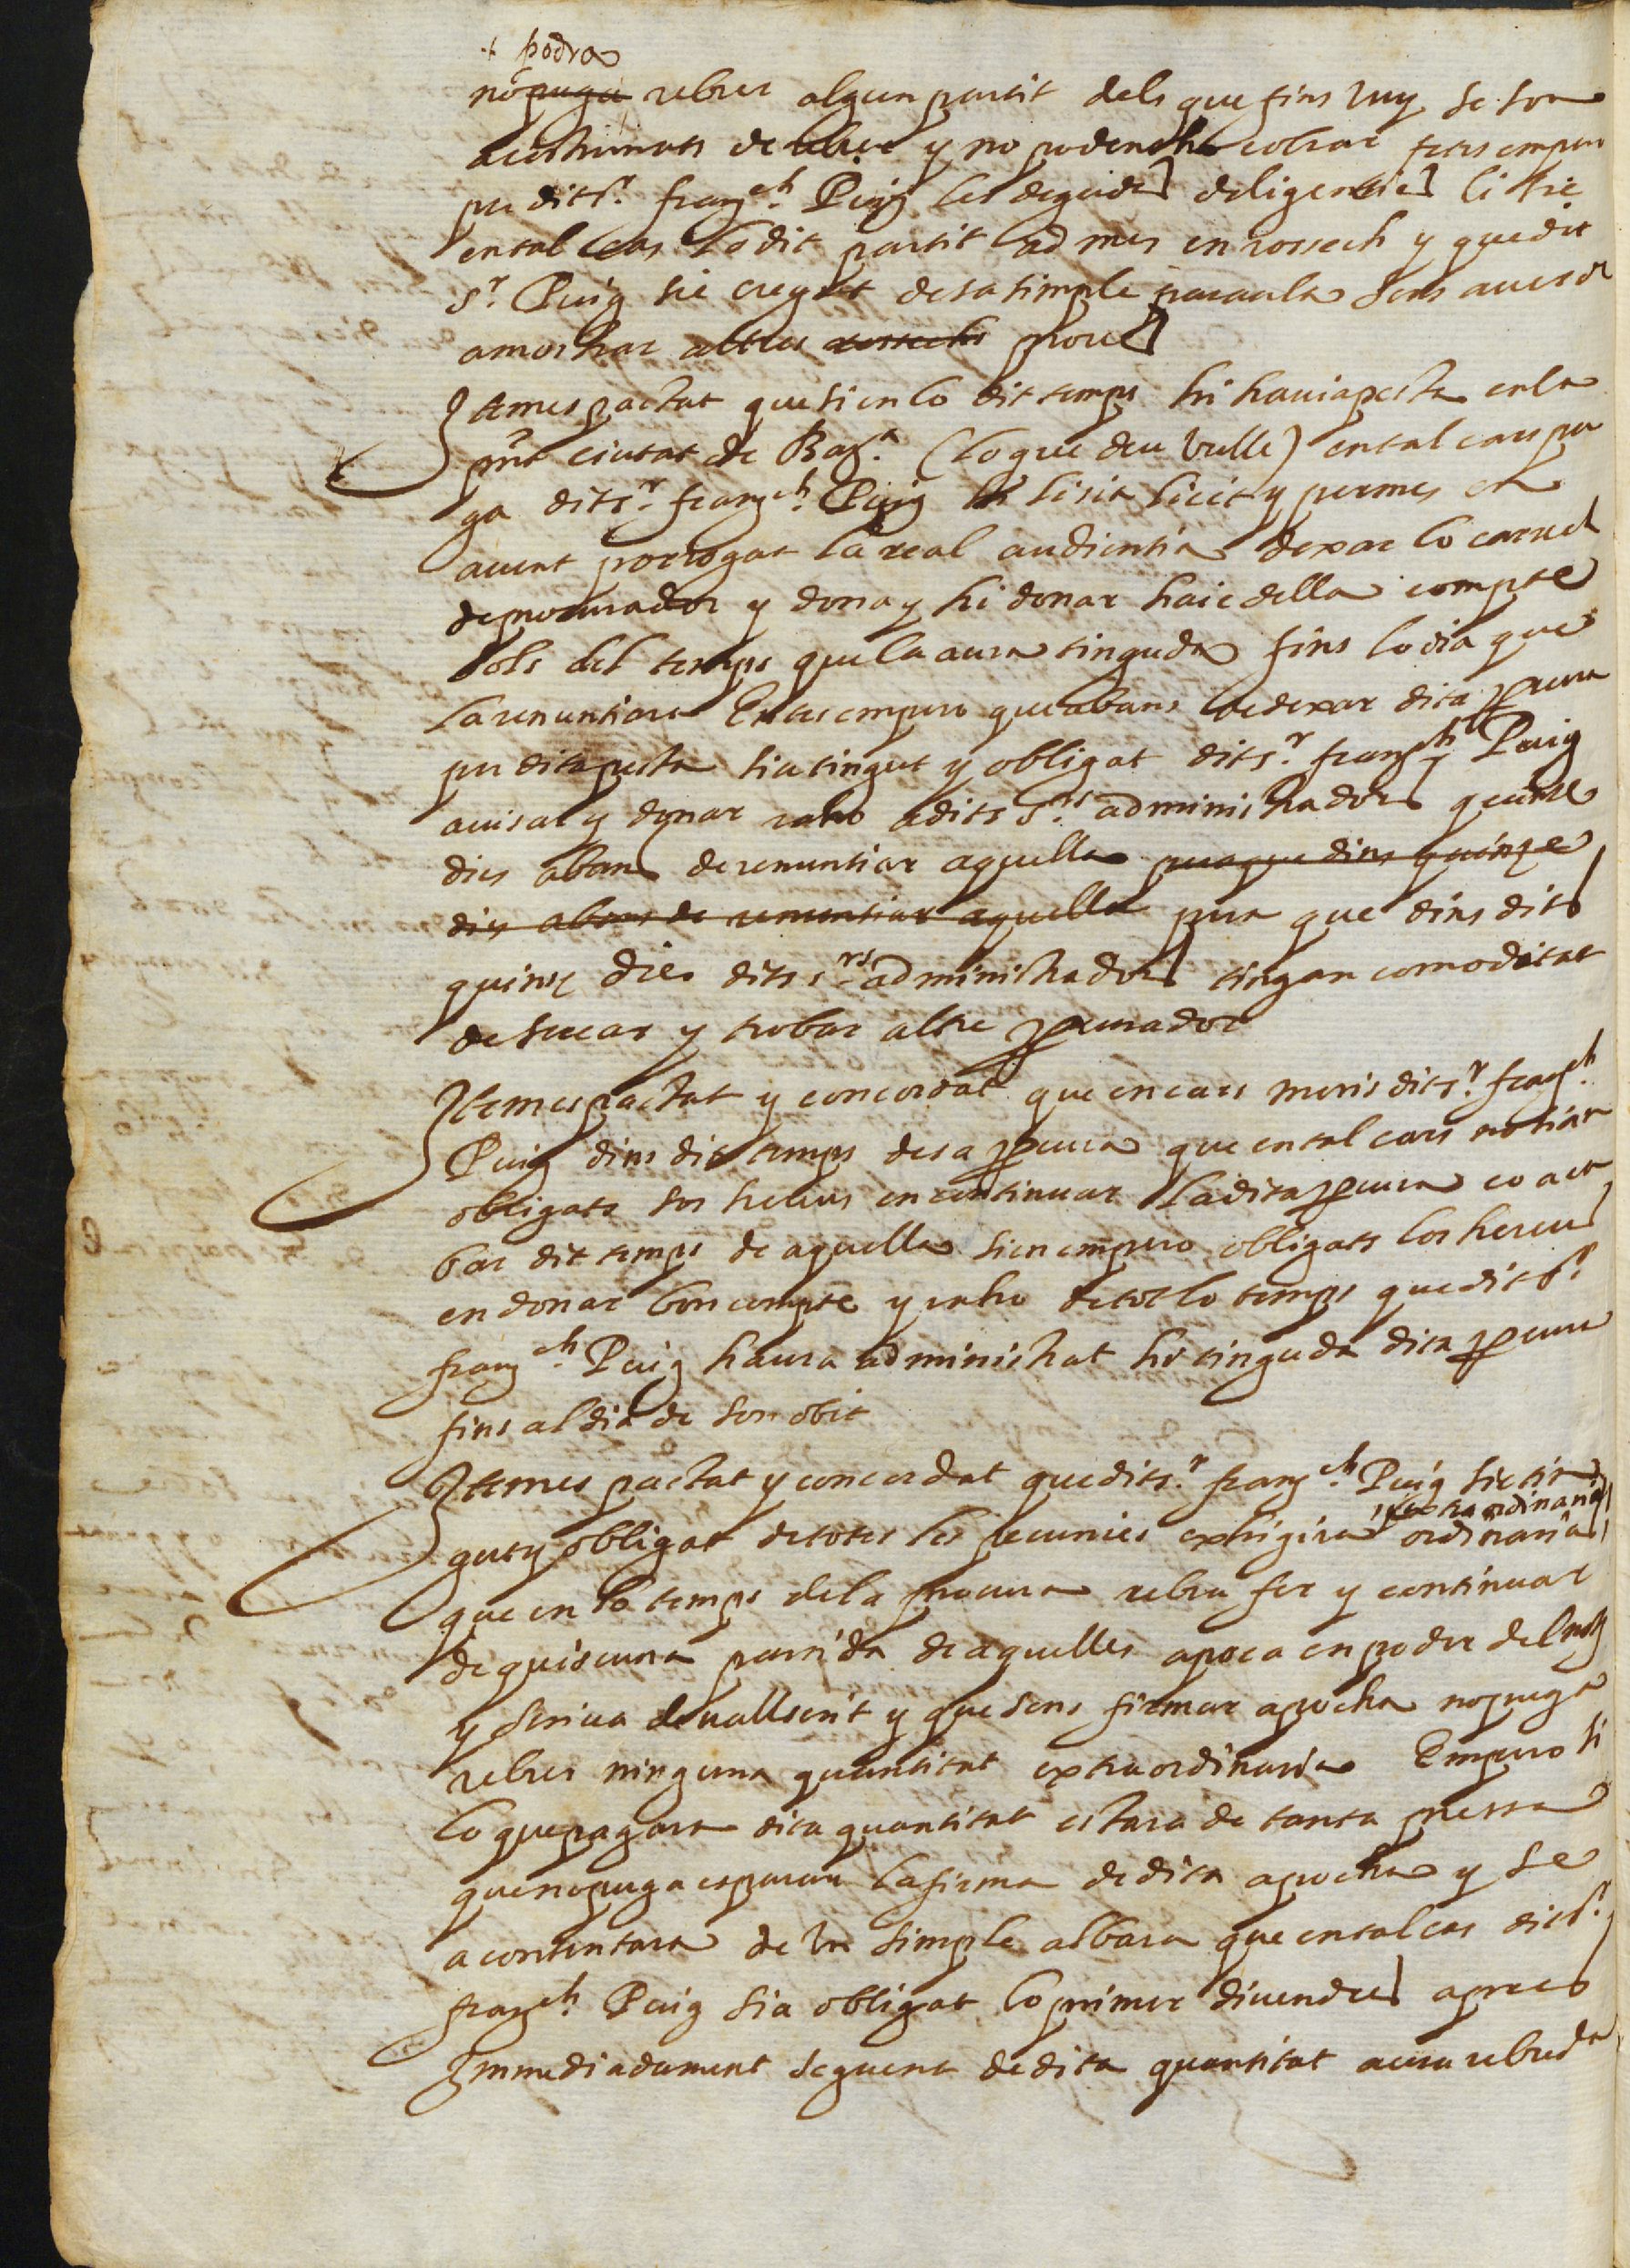 + podra
no puga rebrer algun partit dels que fins vuy se son
acustumats de rebrer y no podentho cobrar fetes empero
per dit Sr. franch. Puig les degudes diligencies li sie
en tal cas lo dit partit admes en rossech y que dit
Sr. Puig sie cregut de sa simple paraula sens auer de
amostrar altres rossechs proves
Item es pactat que si en lo dit temps hi hauia pesta en la
pnt ciutat de Barna. (lo que deu no vulle) en tal cars pu
ga dit Sr. franch. Puig li sia licit y permes en
auent prorrogat la real audientia dexar lo carrech
de procurador y dona y hi donar haie della compte
sols del temps que la aura tinguda fins lo dia que
la renuntiara Entes empero que abans de dexar dita procura
per dita pesta sia tingut y obligat dit Sr. franch Puig
auisar y donar raho a dits Srs. administradors quinse
dies abans de renuntiar aquella peraque dins quinze
dies abans de renuntiar aquella pera que dins dits
quinse dies dits Srs. administradors tingan comoditat
de sercar y trobar altre procurador
Item es pactat y concordat que en cars moris dit Sr. franch.
Puig dins dit temps de sa procura que en tal cars no sian
obligats sos hereus en continuar la dita procura e o aca
bar dit temps de aquella sien empero obligats los hereus
en donar bon compte y raho de tot lo temps que dit Sr.
franch. Puig haura administrat hi tinguda dita procura
fins al dia de son obit
Item es pactat y concordat que dit Sr. franch. Puig sie tin
y extraordinaries
gut y obligat de totes les pecunies exhigira ordinaries
que en lo temps de la procura rebra fer y continuar
de quiscuna partida de aquelles apoca en poder del not
y scriua devallscrit y que sens firmar apocha no puga
rebrer ninguna quantitat extraordinaria Empero si
lo que pagara dita quantitat estara de tanta pressa
que no puga esperar la firma de dita apocha y se
acontentara de un simple albara que en tal cas dit Sr.
franch. Puig sia obligat lo primer diuendres apres
Immediadament seguent de dita quantitat aura rebuda